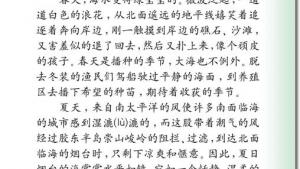 春天,海水更得绿莹莹的。微波迭起,一道
道白色的浪花,从北面遥远的地平线嬉笑着追
逐着奔向岸边,刚一触摸到岸边的礁石、沙滩,
又害羞似的退了回去,然后又扑上来,像个顽皮
的孩子。春天是播种的季节,大海也不例外。脱
去冬装的渔民们驾船驶过平静的海面,到养殖
区去播下希望的种苗,期待着收获的季节。
夏天,来自南太平洋的风使许多南面临海
的城市感到湿漉(lù)漉的,而这股带着潮气的风
经过胶东半岛崇山峻岭的阻拦、过滤,到达北面
临海的烟台时,只剩下凉爽和惬意。因此,夏日